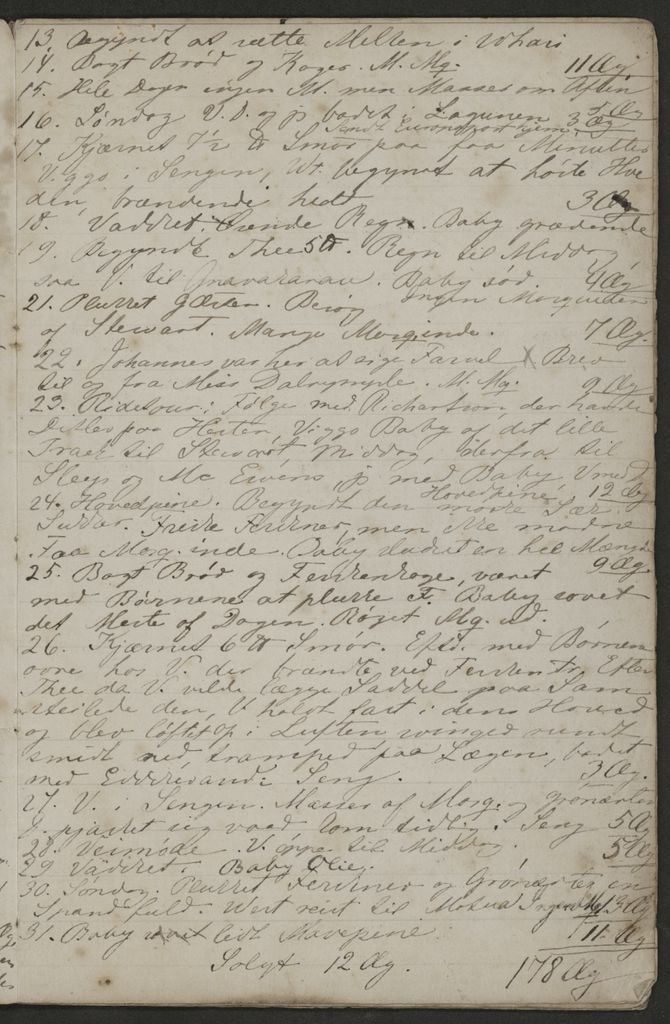 13. Begyndt at sætte Melken i Whari
14. Bagt Brød og Kager. M. Mg. 11 Æg
15. Hele Dagen ingen M. men Masser om Aften
16. Søndag V. D. og jeg badet i Lagunen 3 Æg
17. Kjærnet 7½ ℔ Smør paa faa Minutter
Viggo i Sengen, Wt. begyndt at høste Hve
den, brændende hedt. 3 Æg
18. Vadsket. Regn. Baby grædende
19. Begyndt Thee 5 ℔. Regn til Middag
saa V. til Baby sød. 4 Æg
21. Plukket Gærter. Besøg Ingen Morguider
og Stewart. Mange Morginde. 7 Æg.
22. Johannes var her at sige Farvel X Brev
til og fra Miss Dalrymple. M. Mg. 9 Æg
23. Ridetour i Følge med Richardson, der havde
Ditlev paa Hesten, Viggo Baby og det lille
Træk til Stewart Middag, derfra til
Slegs og Mc Ewens, jeg med Baby, V med
24. Hovedpine. Begyndt den Hovedpine, 12 Æg
Sukker. Ferskner, men ikke modne
Faa Morg. inde. Baby en hel Mængde
25. Bagt Brød og Ferskenkage, været 9 Æg
med Børnene at plukke F. Baby sovet
det Meste af Dagen. Røget Mg. ud.
26. Kjærnet 6 ℔ Smør. Eftd. med Børnene
ovre hos V. der brændte ved Fersken Tr. Efter
Thee da V. vilde lægge Saddel paa Sam
steilede den, V holdt fast i dens Hoved
og blev løftet op i Luften svinged rundt
smidt ned, tramped paa Lægen, badet
med Eddikevand i Seng. 3 Æg.
27. V. i Sengen. Masser af Morg. og grønærter
V. pjasket sig vaad kom tidlig i Seng 5 Æg
28. Veimøde. V. oppe til Middag. 5 Æg
29 Vadsket. Baby Olie.
30. Søndag. Plukket Ferskner og Grønærter en
Spand fuld. Wert reist til Ingen M. 13 Æg
31. Baby lidt Mavepine 11 Æg
Solgt 12 Æg. 178 Æg